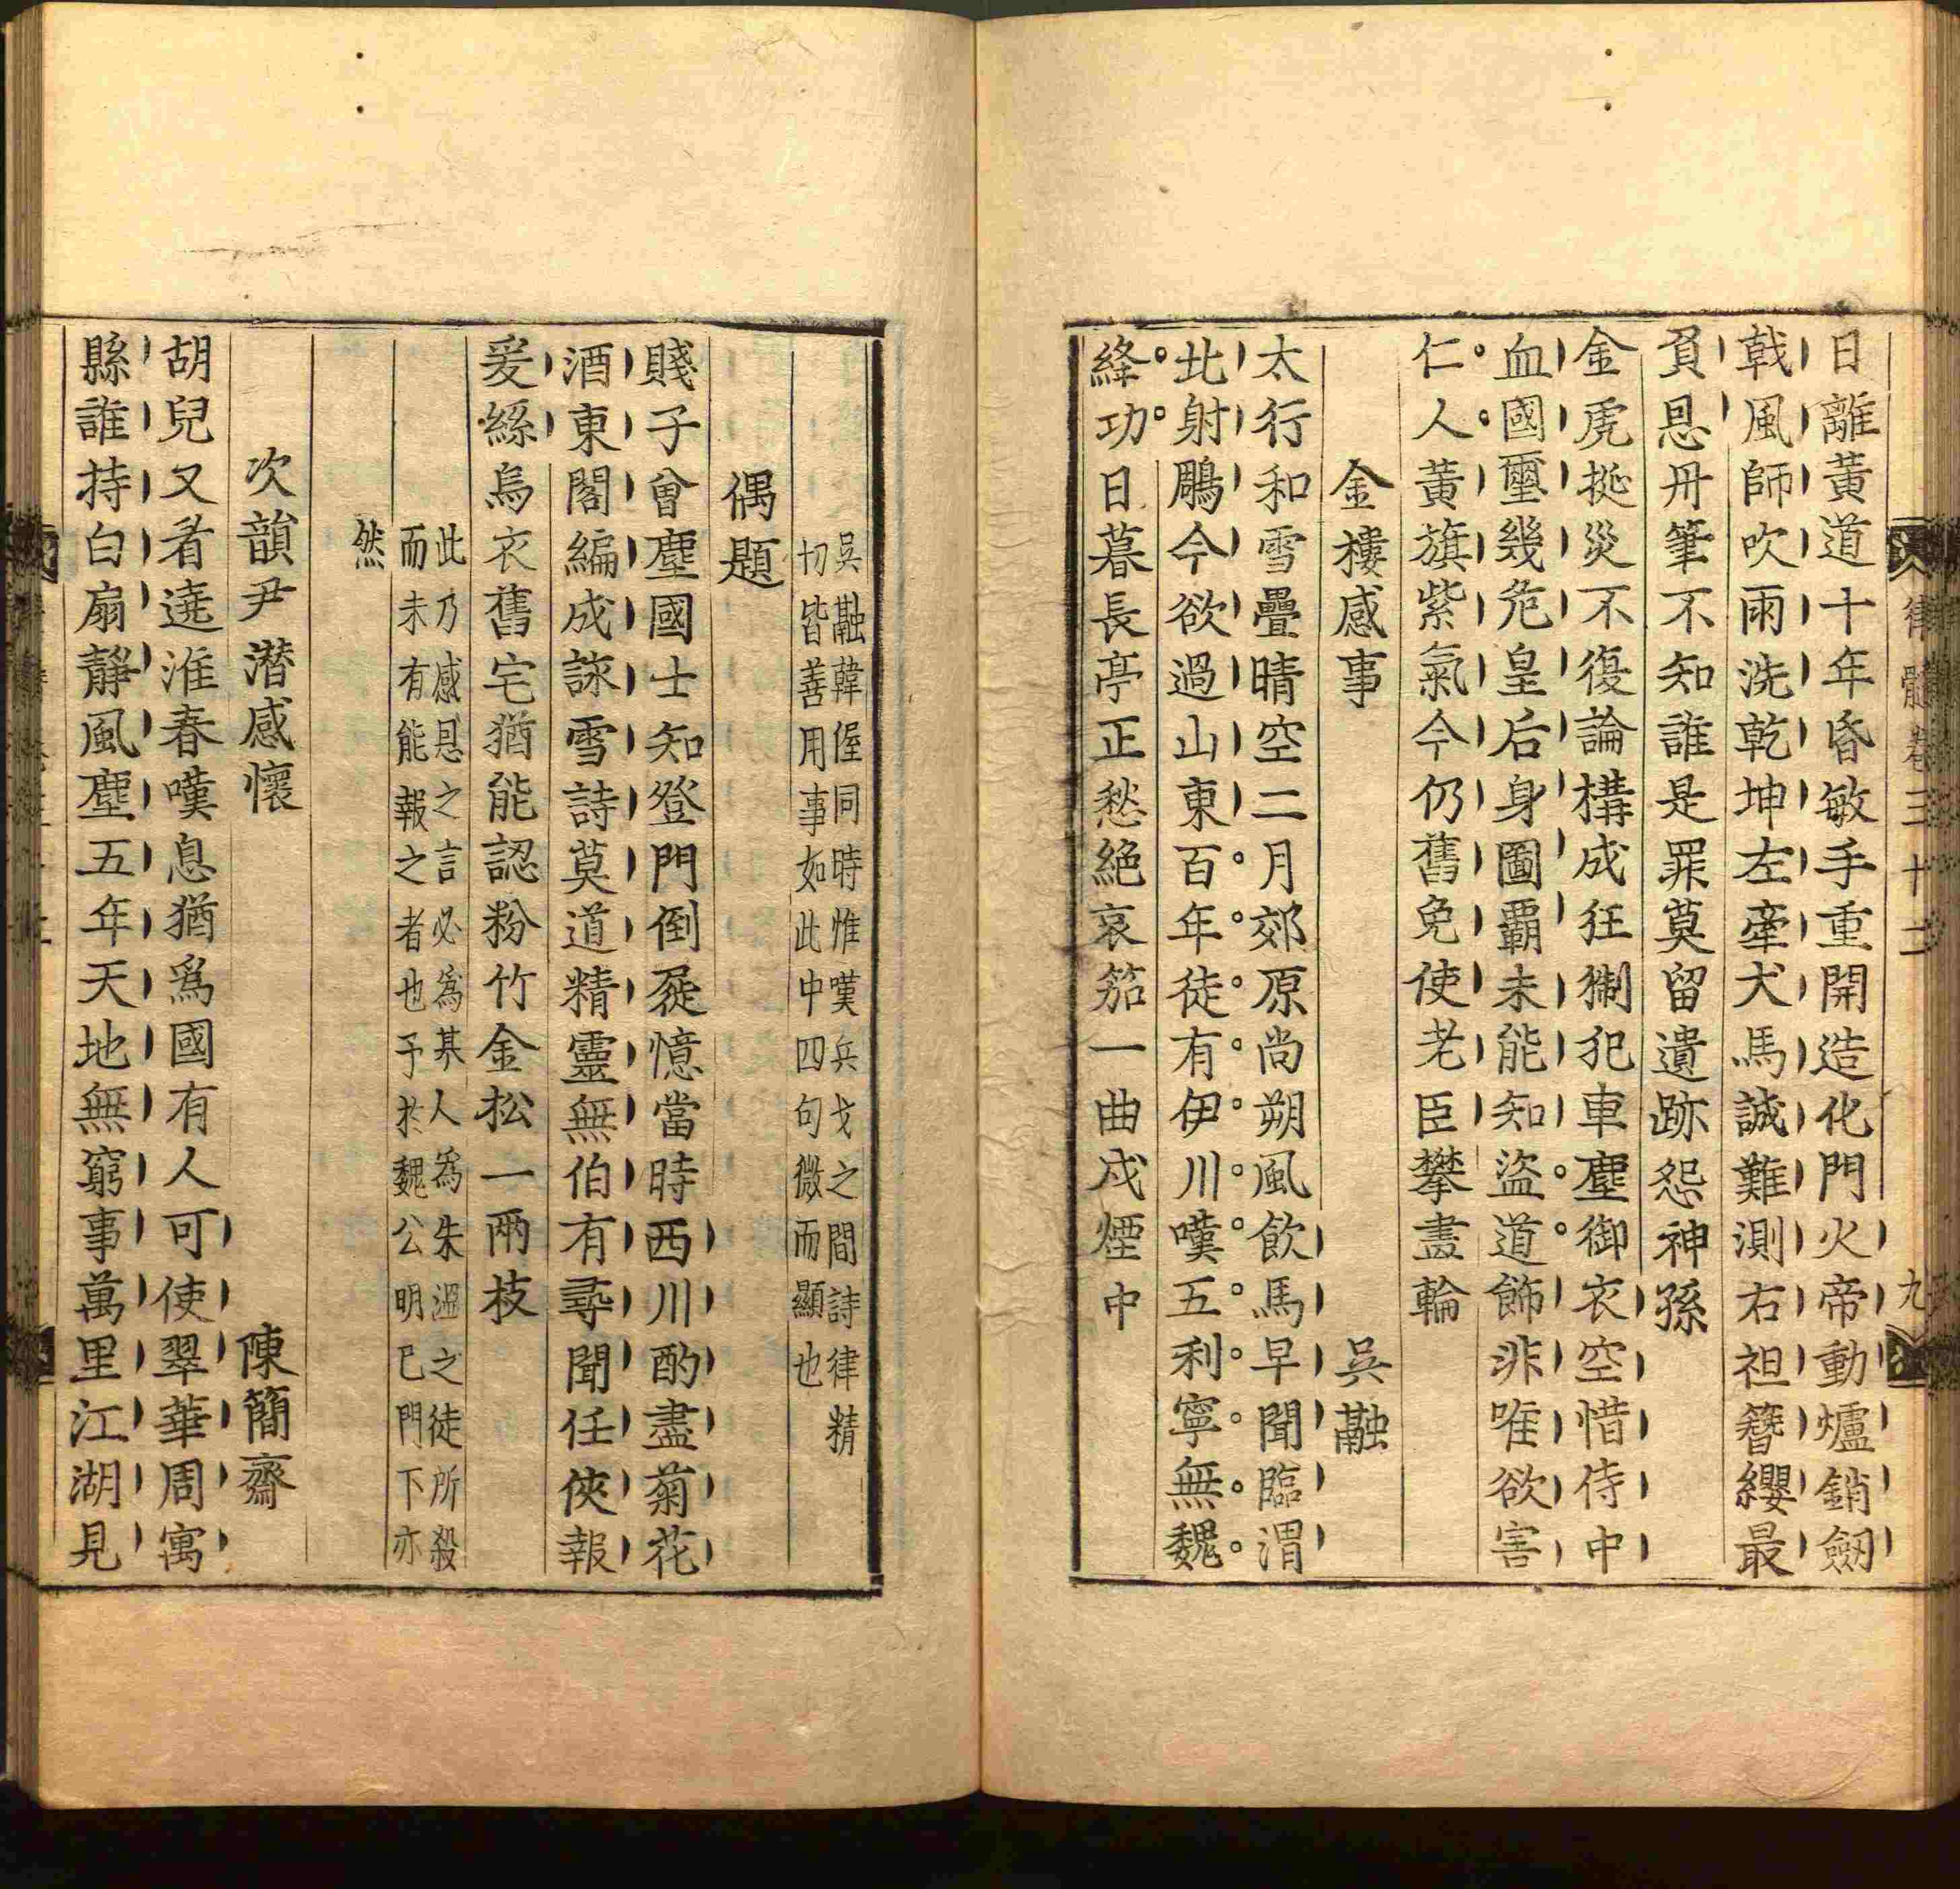 律髓卷三十二
九
日離黃道十年昏敏手重開造化門火帝動爐銷劒
戟風師吹雨洗乾坤左牽犬馬誠難測右袒簪纓最
負恩丹筆不知誰是罪莫留遺跡怨神孫
金虎挻災不復論構成狂猘犯車塵御衣空惜侍中
血國璽幾危皇后身圖霸未能知盜道飾非唯欲害
仁人黃旗紫氣今仍舊免使老臣攀畫輪
金樓感事 吳融
太行和雪疊晴空二月郊原尚朔風飲馬早聞臨渭
北射鵰今欲過山東百年徒有伊川嘆五利寧無魏
絳功日暮長亭正愁絕哀笳一曲戍煙中
吳融韓偓同時惟嘆兵戈之間詩律精
切皆善用事如此中四句微而顯也
偶題
賤子曾塵國士知登門倒屣憶當時西川酌盡菊花
酒東閣編成詠雪詩莫道精靈無伯有尋聞任俠報
爰絲烏衣舊宅猶能認粉竹金松一兩枝
此乃感恩之言必為其人為朱溫之徒所殺
而未有能報之者也予於魏公明巳門下亦
然
次韻尹潛感懷 陳簡齋
胡兒又看遶淮春嘆息猶爲國有人可使翠華周寓
縣誰持白扇靜風塵五年天地無窮事萬里江湖見